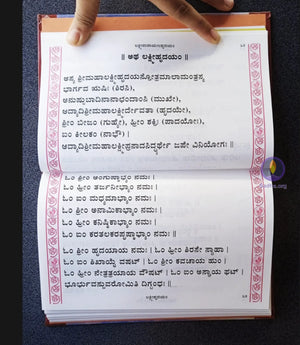 ಲಕ್ಷ್ಮೀನಾರಾಯಣಹೃದಯಂ
೬೫
॥ ಅಥ ಲಕ್ಷ್ಮೀಹೃದಯಂ ॥
ಅಸ್ಯ ಶ್ರೀಮಹಾಲಕ್ಷ್ಮೀಹೃದಯಸ್ತೋತ್ರಮಾಲಾಮಂತ್ರಸ್ಯ
ಭಾರ್ಗವ ಋಷಿಃ (ಶಿರಸಿ),
ಅನುಷ್ಟುಬಾದಿನಾನಾಛಂದಾಂಸಿ (ಮುಖೇ),
ಆದ್ಯಾದಿಶ್ರೀಮಹಾಲಕ್ಷ್ಮೀರ್ದೇವತಾ (ಹೃದಯೇ),
ಶ್ರೀಂ ಬೀಜಂ (ಗುಹ್ಯೇ), ಹ್ರೀಂ ಶಕ್ತಿಃ (ಪಾದಯೋಃ),
ಐಂ ಕೀಲಕಂ (ನಾಭೌ) ।
ಆದ್ಯಾದಿಶ್ರೀಮಹಾಲಕ್ಷ್ಮೀಪ್ರಸಾದಸಿದ್ಧ್ಯರ್ಥೇ ಜಪೇ ವಿನಿಯೋಗಃ ॥
ಓಂ ಶ್ರೀಂ ಅಂಗುಷ್ಠಾಭ್ಯಾಂ ನಮಃ ।
ಓಂ ಹ್ರೀಂ ತರ್ಜನೀಭ್ಯಾಂ ನಮಃ ।
ಓಂ ಐಂ ಮಧ್ಯಮಾಭ್ಯಾಂ ನಮಃ ।
ಓಂ ಶ್ರೀಂ ಅನಾಮಿಕಾಭ್ಯಾಂ ನಮಃ ।
ಓಂ ಹ್ರೀಂ ಕನಿಷ್ಠಿಕಾಭ್ಯಾಂ ನಮಃ ।
ಓಂ ಐಂ ಕರತಲಕರಪೃಷ್ಠಾಭ್ಯಾಂ ನಮಃ ॥
ಓಂ ಶ್ರೀಂ ಹೃದಯಾಯ ನಮಃ । ಓಂ ಹ್ರೀಂ ಶಿರಸೇ ಸ್ವಾಹಾ ।
ಓಂ ಐಂ ಶಿಖಾಯೈ ವಷಟ್ । ಓಂ ಶ್ರೀಂ ಕವಚಾಯ ಹುಂ ।
ಓಂ ಹ್ರೀಂ ನೇತ್ರತ್ರಯಾಯ ವೌಷಟ್ । ಓಂ ಐಂ ಅಸ್ತ್ರಾಯ ಫಟ್ ।
ಭೂರ್ಭುವಸ್ಸುವರೋಮಿತಿ ದಿಗ್ಬಂಧಃ ॥
ಲಕ್ಷ್ಮೀಹೃದಯಂ